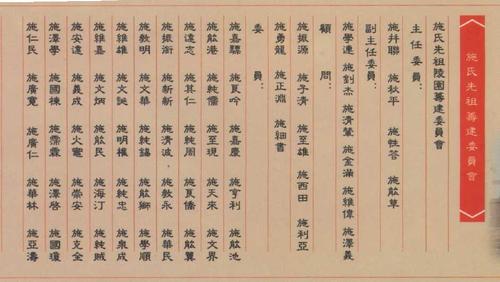 施氏先祖籌建委員會
施氏先祖陵園籌建委員會
主任委員：
施並聯 施秋平 施性答 施能草
副主任委員：
施學連 施釗杰 施清鶯 施金滿 施維偉 施澤義
顧問：
施振源 施子清 施至雄 施西田 施利亞
施勇龍 施正淵 施細書
委員：
施嘉驃 施良吟 施嘉慶 施亨利 施能池
施能港 施純儒 施至現 施天來 施文界
施遠志 施其仁 施純周 施良僑 施能翼
施振銜 施新新 施清誠 施教永 施華民
施教明 施文華 施純鍚 施能獅 施學順
施維雄 施文誕 施明權 施純忠 施泉成
施維嘉 施文炳 施能民 施海汀 施純賊
施安達 施義成 施火電 施崇安 施克全
施澤學 施國棟 施霈霖 施澤啓 施國瓊
施仁民 施廣寬 施廣仁 施華林 施亞濤